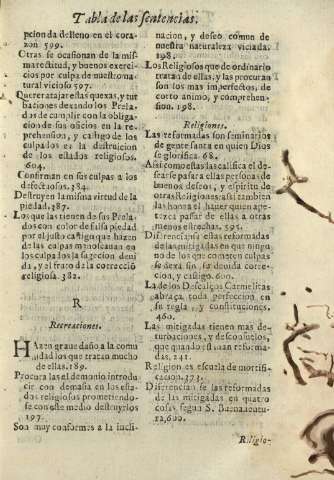 Tabla de las sentencias.
pcion da de lleno en el cora
zon 599.
Otras se ocasionan de la mis
ma rectitud, y buenos exerci
cios por culpa de nuestro na
tural vicioso 597.
Querer atajar estas quexas, y tur
baciones dexando los Prela
dos de cumplir con la obliga
cion de sus oficios en la re
prehension, y castigo de los
culpados es la destruicion
de los estados religiosos.
604.
Confirman en sus culpas a los
defectuosos. 384.
Destruyen la misma virtud de la
piedad. 387.
Los que las tienen de sus Prela
dos con color de falsa piedad
por el justo castigo que hazen
de las culpas
los culpados la
da, y el fruto de la correcciõ
religiosa. 382.
R
Recreaciones.
HAzen graue daño a la comu
nidad los que tratan mucho
de ellas. 189.
Procura las el demonio introdu
cir con demasia en los esta
dos religiosos prometiendo-
se con este medio destruyrlos
197.
Son muy conformes a la incli-
nacion, y deseo comun de
nuestra naturaleza viciada.
198.
Los Religiosos que de ordinario
tratan de ellas, y las procuran
son los mas imperfectos, de
corto animo, y comprehen-
sion. 198.
Religiones.
Las reformadas son seminarios
de gente santa en quien Dios
se glorifica. 68.
Assi como estas las califica el de-
sear se passar a ellas personas de
buenos deseos, y espiritu de
otras Religiones: assi tambien
las honra el hauer quien ape-
tezca passar de ellas a otras
menos estrechas, 595.
Diferencianse ellas reformadas
de las mitigadas en que ningu
no de los que cometen culpas
se dexa sin su deuida corre-
cion, y castigo. 600.
La de los Descalços Carmelitas
abraça toda perfeccion en
su regla, y constituciones.
460.
Las mitigadas tienen mas de
turbaciones, y desconsuelos,
que quando estauan reforma-
das, 241.
Religion es escuela de mortifi-
cacion. 373.
Diferencian se las reformadas
de las mitigadas en quatro
cosas segun S. Buenauentu-
ra, 600.
Religio-